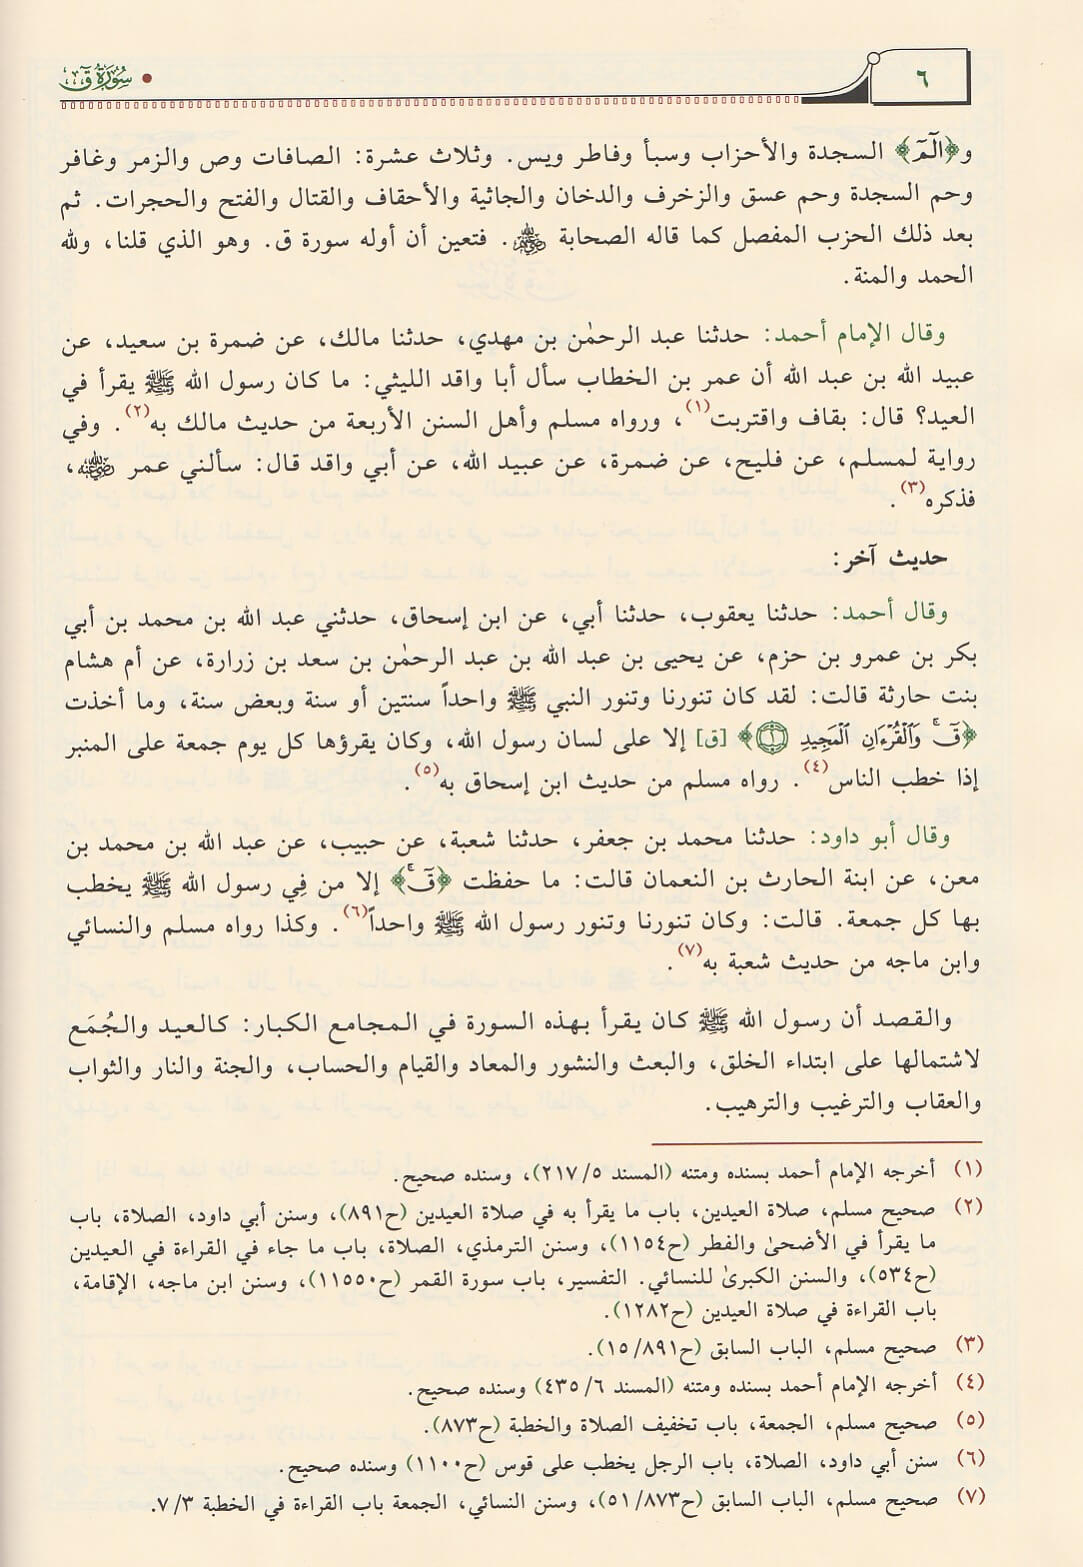 ٦
سُورَةُ قٓ
و﴿الٓمٓ﴾ السجدة والأحزاب وسبأ وفاطر ويس. وثلاث عشرة: الصافات وص والزمر وغافر
وحم السجدة وحم عسق والزخرف والدخان والجاثية والأحقاف والقتال والفتح والحجرات. ثم
بعد ذلك الحزب المفصل كما قاله الصحابة ﵃. فتعين أن أوله سورة ق. وهو الذي قلنا، ولله
الحمد والمنة.
وقال الإمام أحمد: حدثنا عبد الرحمٰن بن مهدي، حدثنا مالك، عن ضمرة بن سعيد، عن
عبيد الله بن عبد الله أن عمر بن الخطاب سأل أبا واقد الليثي: ما كان رسول الله ﷺ يقرأ في
العيد؟ قال: بقاف واقتربت(١)، ورواه مسلم وأهل السنن الأربعة من حديث مالك به(٢). وفي
رواية لمسلم، عن فليح، عن ضمرة، عن عبيد الله، عن أبي واقد قال: سألني عمر ﵁،
فذكره(٣).
حديث آخر:
وقال أحمد: حدثنا يعقوب، حدثنا أبي، عن ابن إسحاق، حدثني عبد الله بن محمد بن أبي
بكر بن عمرو بن حزم، عن يحيى بن عبد الله بن عبد الرحمٰن بن سعد بن زرارة، عن أم هشام
بنت حارثة قالت: لقد كان تنورنا وتنور النبي ﷺ واحداً سنتين أو سنة وبعض سنة، وما أخذت
﴿قٓۚ وَٱلْقُرْءَانِ ٱلْمَجِيدِ ١﴾ [ق] إلا على لسان رسول الله، وكان يقرؤها كل يوم جمعة على المنبر
إذا خطب الناس(٤). رواه مسلم من حديث ابن إسحاق به(٥).
وقال أبو داود: حدثنا محمد بن جعفر، حدثنا شعبة، عن حبيب، عن عبد الله بن محمد بن
معن، عن ابنة الحارث بن النعمان قالت: ما حفظت ﴿قٓۚ﴾ إلا من فِي رسول الله ﷺ يخطب
بها كل جمعة. قالت: وكان تنورنا وتنور رسول الله ﷺ واحداً(٦). وكذا رواه مسلم والنسائي
وابن ماجه من حديث شعبة به(٧).
والقصد أن رسول الله ﷺ كان يقرأ بهذه السورة في المجامع الكبار: كالعيد والجُمَع
لاشتمالها على ابتداء الخلق، والبعث والنشور والمعاد والقيام والحساب، والجنة والنار والثواب
والعقاب والترغيب والترهيب.
(١) أخرجه الإمام أحمد بسنده ومتنه (المسند ٥/ ٢١٧)، وسنده صحيح.
(٢) صحيح مسلم، صلاة العيدين، باب ما يقرأ به في صلاة العيدين (ح٨٩١)، وسنن أبي داود، الصلاة، باب
ما يقرأ في الأضحىٰ والفطر (ح١١٥٤)، وسنن الترمذي، الصلاة، باب ما جاء في القراءة في العيدين
(ح٥٣٤)، والسنن الكبرىٰ للنسائي. التفسير، باب سورة القمر (ح١١٥٥٠)، وسنن ابن ماجه، الإقامة،
باب القراءة في صلاة العيدين (ح١٢٨٢).
(٣) صحيح مسلم، الباب السابق (ح٨٩١/ ١٥).
(٤) أخرجه الإمام أحمد بسنده ومتنه (المسند ٦/ ٤٣٥) وسنده صحيح.
(٥) صحيح مسلم، الجمعة، باب تخفيف الصلاة والخطبة (ح٨٧٣).
(٦) سنن أبي داود، الصلاة، باب الرجل يخطب على قوس (ح١١٠٠) وسنده صحيح.
(٧) صحيح مسلم، الباب السابق (ح٨٧٣/ ٥١)، وسنن النسائي، الجمعة باب القراءة في الخطبة ٣/ ٧.